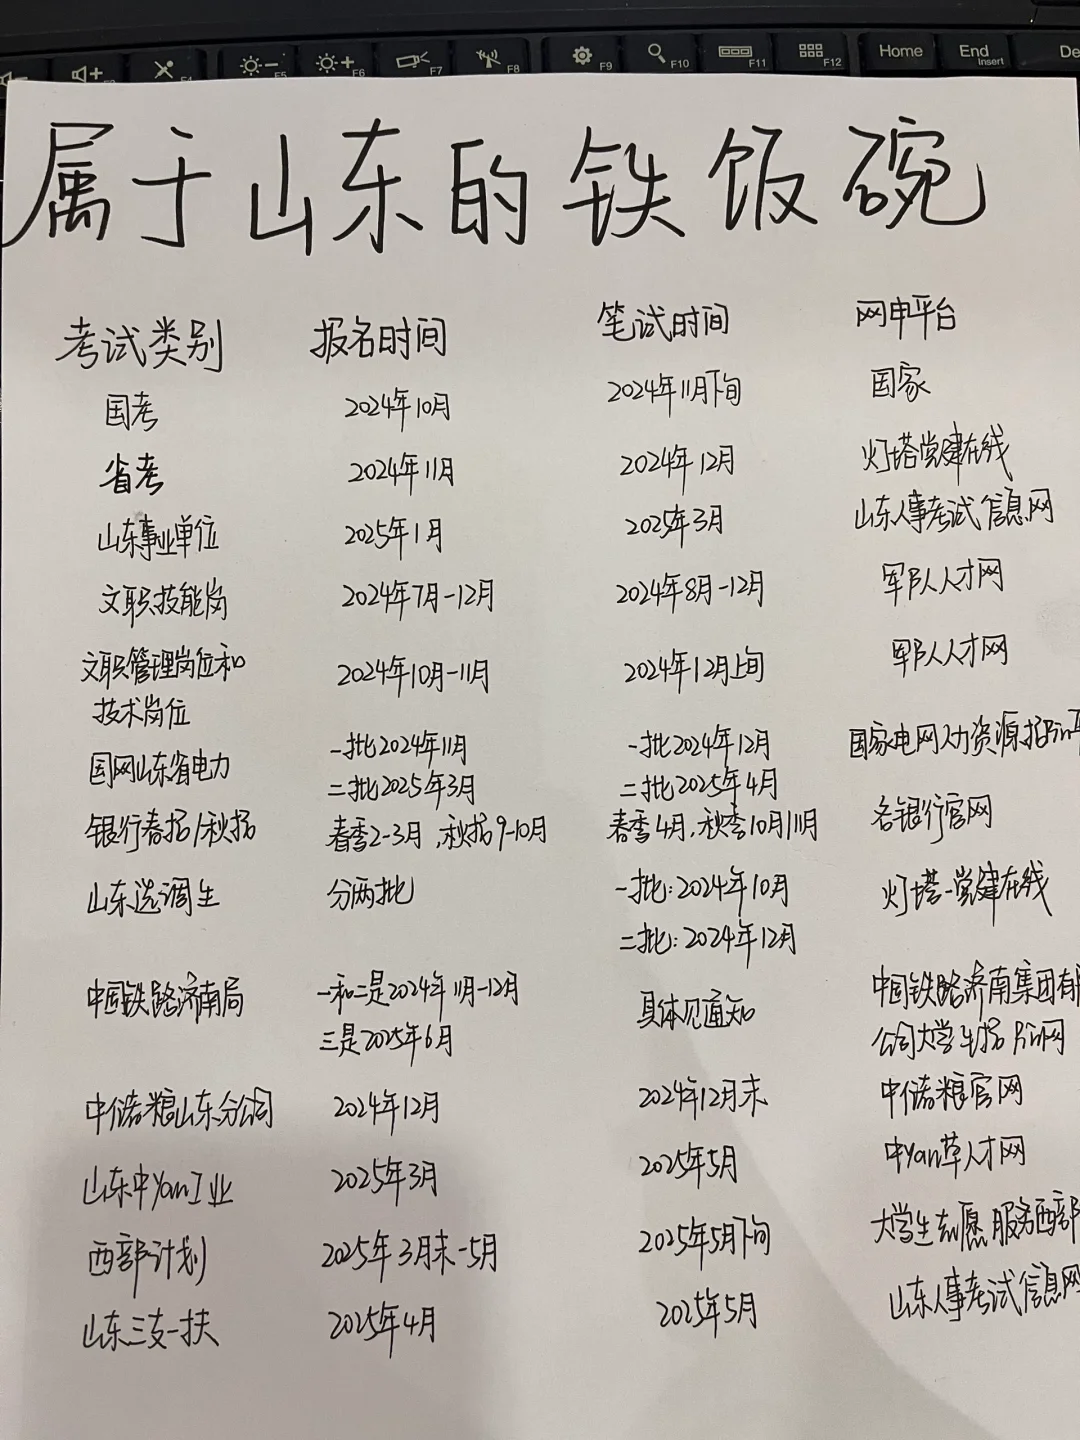 F5 F6 F7 F8 F9 F10 F11 F12 Home End Insert De
属于山东的铁饭碗
考试类别 报名时间 笔试时间 网申平台
国考 2024年10月 2024年11月下旬 国家
省考 2024年11月 2024年12月 灯塔党建在线
山东事业单位 2025年1月 2025年3月 山东人事考试信息网
文职技能岗 2024年7月-12月 2024年8月-12月 军队人才网
文职管理岗位和 2024年10月-11月 2024年12月上旬 军队人才网
技术岗位
国网山东省电力 一批2024年11月 一批2024年12月 国家电网人力资源招
二批2025年3月 二批2025年4月
银行春招/秋招 春季2-3月,秋招9-10月 春季4月,秋季10月/11月 各银行官网
山东选调生 分两批 一批:2024年10月 灯塔-党建在线
二批:2024年12月
中国铁路济南局 一和二是2024年11月-12月 具体见通知 中国铁路济南集团有
三是2025年6月 公司大学生招聘网
中储粮山东分公司 2024年12月 2024年12月末 中储粮官网
山东中Yan工业 2025年3月 2025年5月 中Yan草人才网
西部计划 2025年3月末-5月 2025年5月下旬 大学生志愿服务西部
山东三支一扶 2025年4月 2025年5月 山东人事考试信息网